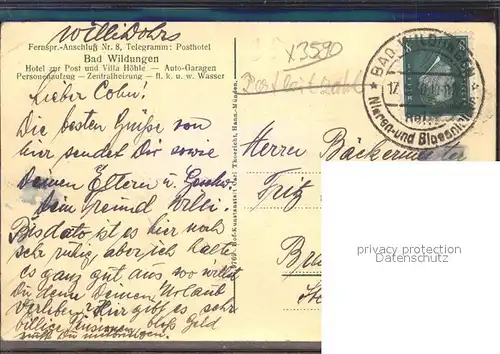 Willi Dohrs
Fernspr.-Anschluß Nr. 8, Telegramm: Posthotel
Bad Wildungen
Hotel zur Post und Villa Höhle — Auto-Garagen
Personenaufzug — Zentralheizung — fl. k. u. w. Wasser
X3590
BAD WILDUNGEN
17.
Nieren- und Blasen
8
Lieber Cohn!
Die besten Grüße von
hier sendet Dir sowie
Deinen Eltern u. Geschw.
Dein Freund Willi.
Bis dato ist es hier noch
sehr ruhig, aber ich halte
es ganz gut aus. Wo willst
Du denn Deinen Urlaub
verleben? Hier gibt es sehr
billige Pensionen, bloß Geld
mußt Du mitbringen.
Hof-Kunstanstalt Carl Thoericht, Hann.-Münden
Herrn Bäckermeister
Fritz
privacy protection
Datenschutz